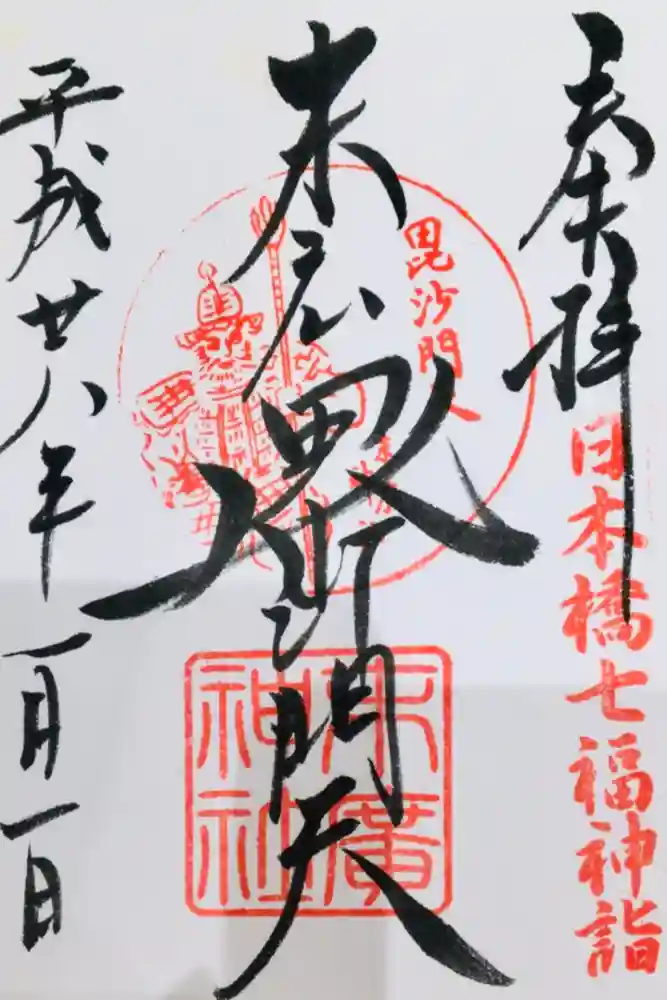 奉拝
日本橋七福神詣
末広毘沙門天
毘沙門天
末廣神社
平成廿八年一月一日